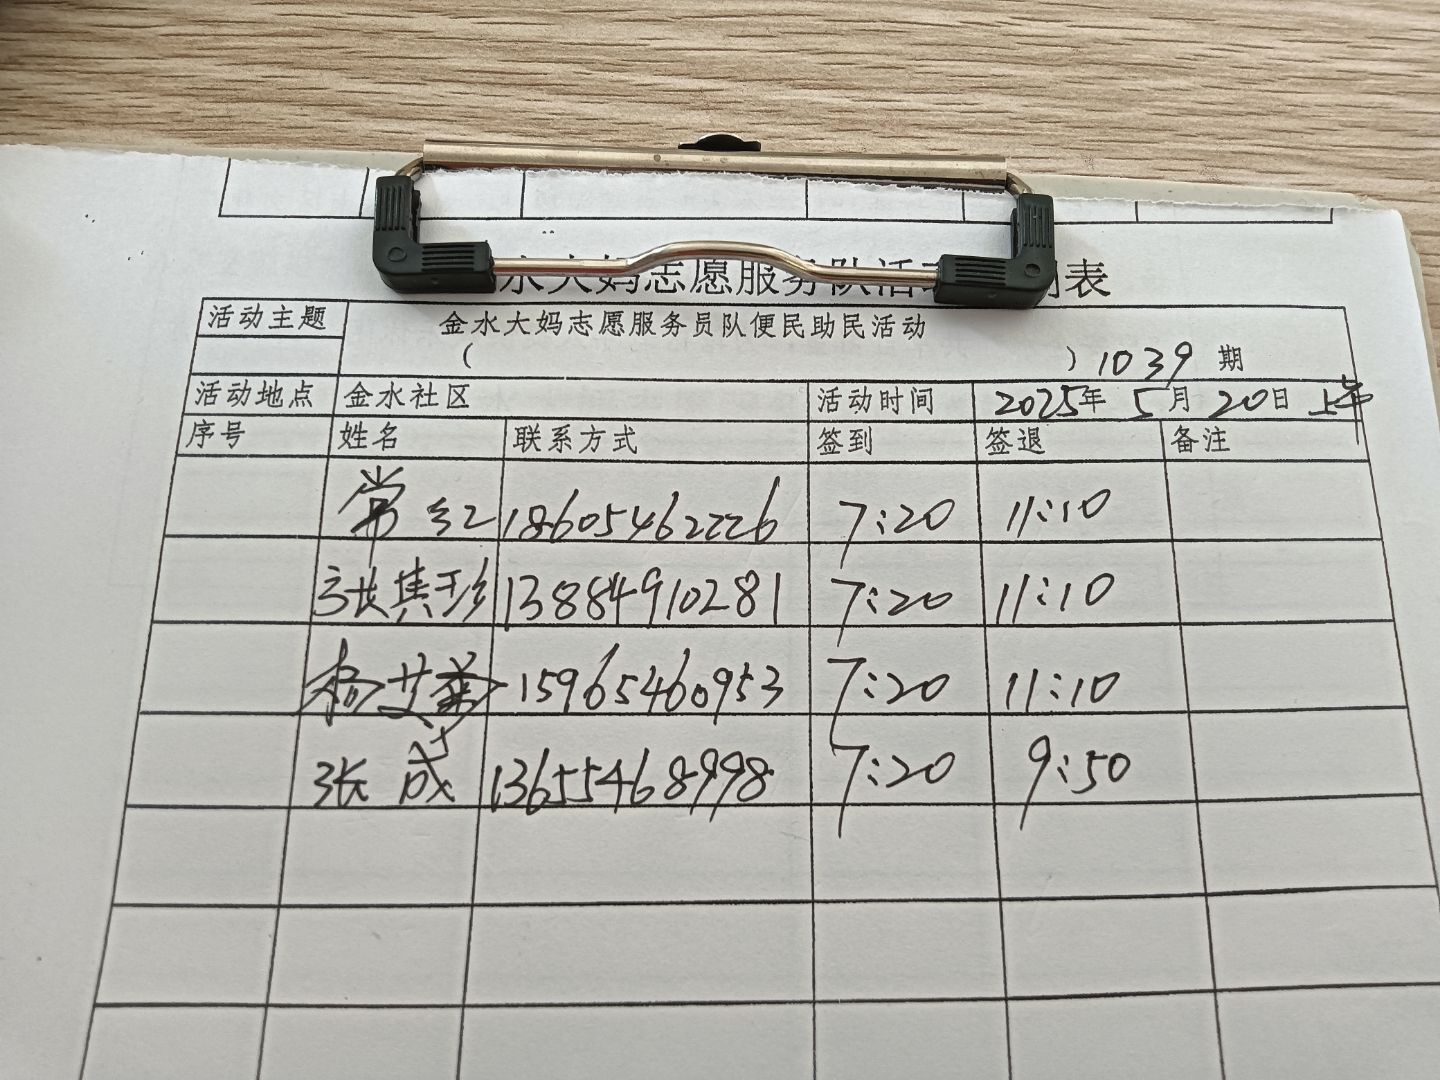 水大妈志愿服务队活动 表
活动主题 金水大妈志愿服务员队便民助民活动
( ) 1039 期
活动地点 金水社区 活动时间 2025年 5月 20日 上午
序号 姓名 联系方式 签到 签退 备注
常红 18605462226 7:20 11:10
张其珍 13884910281 7:20 11:10
杨艾 15965460953 7:20 11:10
张成 13655468998 7:20 9:50